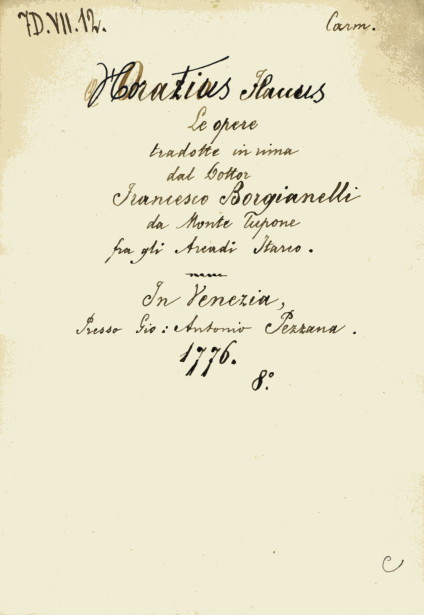 7D.VII.12.
Carm.
Horatius Flaccus
Le opere
tradotte in rima
dal Dottor
Francesco Borgianelli
da Monte Lupone
fra gli Arcadi Itarco.
In Venezia,
Presso Gio: Antonio Pezzana.
1776.
8.°
C